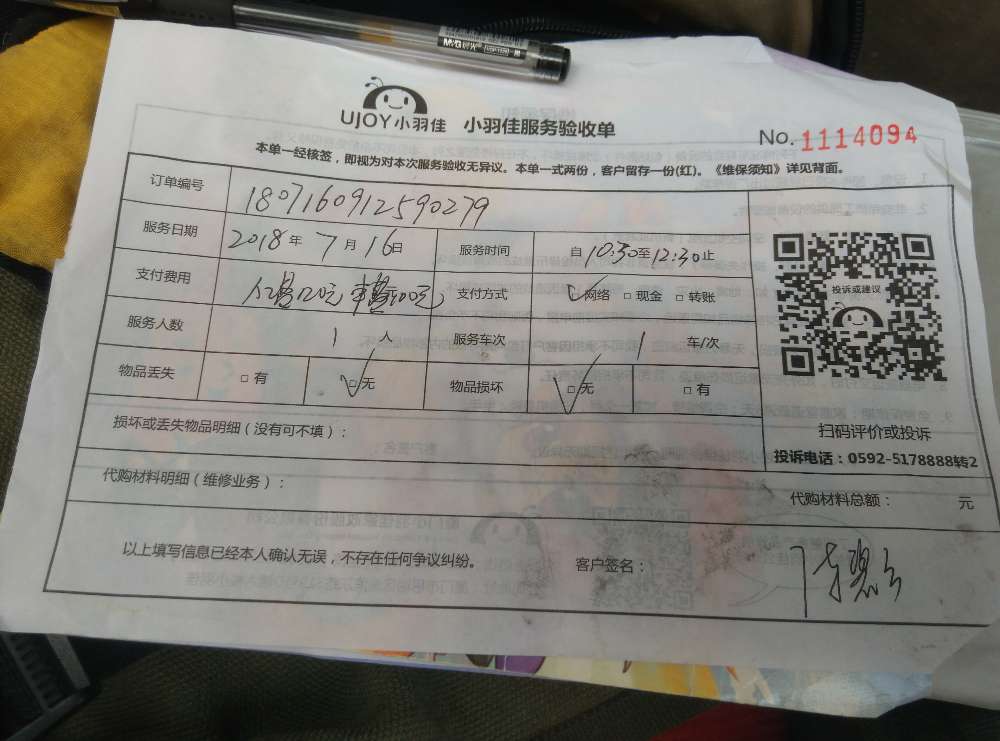 UJOY小羽佳 小羽佳服务验收单
No. 1114094
本单一经核签，即视为对本次服务验收无异议。本单一式两份，客户留存一份(红)。《维保须知》详见背面。
订单编号 1807160912590279
服务日期 2018年7月16日 服务时间 自10:30至12:30止
支付费用 支付方式 ☑网络 □现金 □转账
服务人数 1人 服务车次 1 车/次
物品丢失 □有 ☑无 物品损坏 ☑无 □有
投诉或建议
扫码评价或投诉
投诉电话：0592-5178888转2
损坏或丢失物品明细（没有可不填）：
代购材料明细（维修业务）： 代购材料总额： 元
以上填写信息已经本人确认无误，不存在任何争议纠纷。 客户签名：